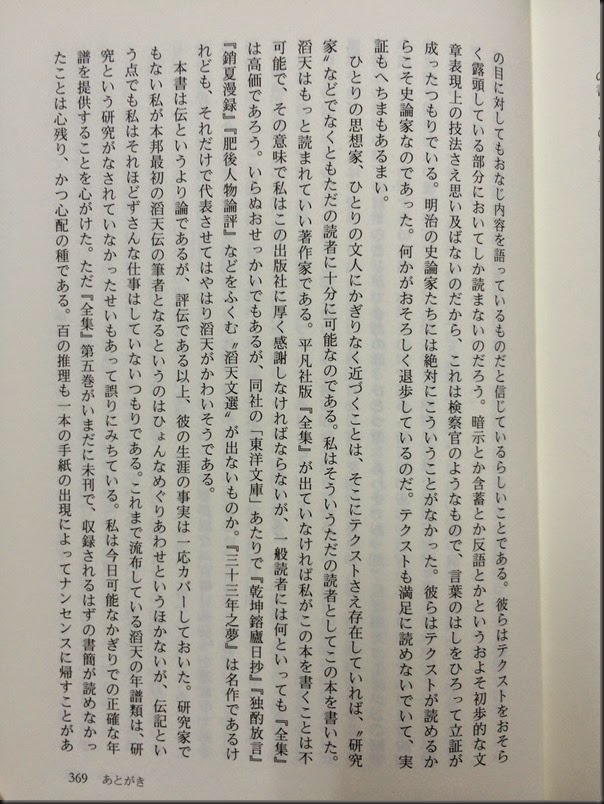 の目に対してもおなじ内容を語っているものだと信じているらしいことである。彼らはテクストをおそら
く露頭している部分においてしか読まないのだろう。暗示とか含蓄とか反語とかというおよそ初歩的な文
章表現上の技法さえ思い及ばないのだから、これは検察官のようなもので、言葉のはしをひろって立証が
成ったつもりでいる。明治の史論家たちには絶対にこういうことがなかった。彼らはテクストが読めるか
らこそ史論家なのであった。何かがおそろしく退歩しているのだ。テクストも満足に読めないでいて、実
証もへちまもあるまい。
ひとりの思想家、ひとりの文人にかぎりなく近づくことは、そこにテクストさえ存在していれば、〝研究
家〟などでなくともただの読者に十分に可能なのである。私はそういうただの読者としてこの本を書いた。
滔天はもっと読まれていい著作家である。平凡社版『全集』が出ていなければ私がこの本を書くことは不
可能で、その意味で私はこの出版社に厚く感謝しなければならないが、一般読者には何といっても『全集』
は高価であろう。いらぬおせっかいでもあるが、同社の「東洋文庫」あたりで『乾坤鎔廬日抄』『独酌放言』
『銷夏漫録』『肥後人物論評』などをふくむ〝滔天文選〟が出ないものか。『三十三年之夢』は名作であるけ
れども、それだけで代表させてはやはり滔天がかわいそうである。
本書は伝というより論であるが、評伝である以上、彼の生涯の事実は一応カバーしておいた。研究家で
もない私が本邦最初の滔天伝の筆者となるというのはひょんなめぐりあわせというほかないが、伝記とい
う点でも私はそれほどずさんな仕事はしていないつもりである。これまで流布している滔天の年譜類は、研
究という研究がなされていなかったせいもあって誤りにみちている。私は今日可能なかぎりでの正確な年
譜を提供することを心がけた。ただ『全集』第五巻がいまだに未刊で、収録されるはずの書簡が読めなかっ
たことは心残り、かつ心配の種である。百の推理も一本の手紙の出現によってナンセンスに帰すことがあ
369 あとがき